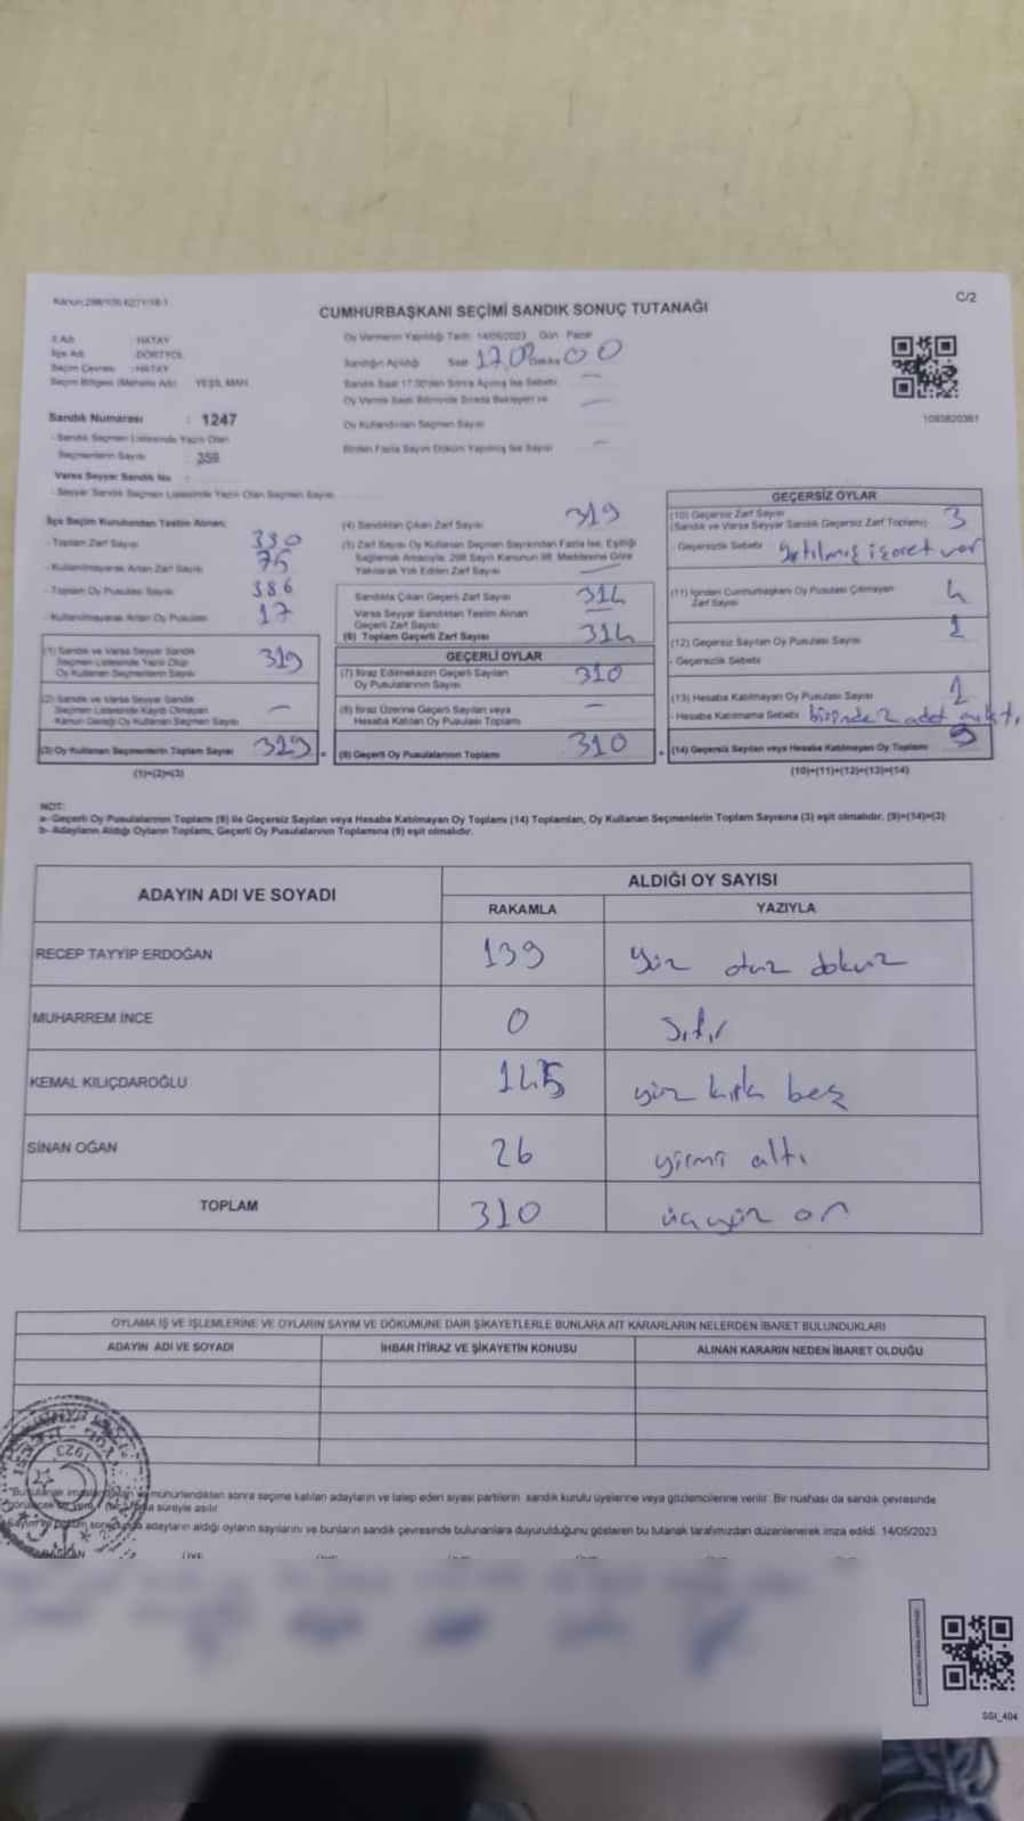 C/2
CUMHURBAŞKANI SEÇİMİ SANDIK SONUÇ TUTANAĞI
İl Adı : HATAY
İlçe Adı : DÖRTYOL
Seçim Çevresi : HATAY
Seçim Bölgesi (Mahalle Adı) YEŞİL MAH.
Oy Vermenin Yapıldığı Tarih 14/05/2023 Gün Pazar
Sandığın Açılışı Saat 17.00 00
Sandık Saat 17.00'den Sonra Açılmış İse Sebebi
Oy Kullandırılan Seçmen Sayısı
Birden Fazla Sayım Döküm Yapılmış İse Sayısı
1093820361
Sandık Numarası : 1247
- Sandık Seçmen Listesinde Yazılı Olan
Seçmenlerin Sayısı : 358
Varsa Seyyar Sandık No :
- Seyyar Sandık Seçmen Listesinde Yazılı Olan Seçmen Sayısı
İlçe Seçim Kurulundan Teslim Alınan;
- Toplam Zarf Sayısı 390
- Kullanılmayarak Artan Zarf Sayısı 75
- Toplam Oy Pusulası Sayısı 386
- Kullanılmayarak Artan Oy Pusulası 17
(1) Sandık ve Varsa Seyyar Sandık
Seçmen Listesinde Yazılı Olup
Oy Kullanan Seçmenlerin Sayısı 319
(2) Sandık ve Varsa Seyyar Sandık
Seçmen Listesinde Kayıtlı Olmayan
Kanun Gereği Oy Kullanan Seçmen Sayısı –
(3) Oy Kullanan Seçmenlerin Toplam Sayısı 319
(1)+(2)=(3)
(4) Sandıktan Çıkan Zarf Sayısı 319
(5) Zarf Sayısı Oy Kullanan Seçmen Sayısından Fazla İse, Eşitliği
Sağlamak Amacıyla, 298 Sayılı Kanunun 98. Maddesine Göre
Yakılarak Yok Edilen Zarf Sayısı –
Sandıkta Çıkan Geçerli Zarf Sayısı 314
Varsa Seyyar Sandıktan Teslim Alınan
Geçerli Zarf Sayısı –
(6) Toplam Geçerli Zarf Sayısı 314
GEÇERLİ OYLAR
(7) İtiraz Edilmeksizin Geçerli Sayılan
Oy Pusulalarının Sayısı 310
(8) İtiraz Üzerine Geçerli Sayılan veya
Hesaba Katılan Oy Pusulası Toplamı –
(9) Geçerli Oy Pusulalarının Toplamı 310
GEÇERSİZ OYLAR
(10) Geçersiz Zarf Sayısı
(Sandık ve Varsa Seyyar Sandık Geçersiz Zarf Toplamı) 3
- Geçersizlik Sebebi işaret var
(11) İçinden Cumhurbaşkanı Oy Pusulası Çıkmayan
Zarf Sayısı 4
(12) Geçersiz Sayılan Oy Pusulası Sayısı 1
- Geçersizlik Sebebi
(13) Hesaba Katılmayan Oy Pusulası Sayısı 1
- Hesaba Katılmama Sebebi birinde 2 adet çıktı
(14) Geçersiz Sayılan veya Hesaba Katılmayan Oy Toplamı 9
(10)+(11)+(12)+(13)=(14)
NOT:
a- Geçerli Oy Pusulalarının Toplamı (9) ile Geçersiz Sayılan veya Hesaba Katılmayan Oy Toplamı (14) Toplamları, Oy Kullanan Seçmenlerin Toplam Sayısına (3) eşit olmalıdır. (9)+(14)=(3)
b- Adayların Aldığı Oyların Toplamı, Geçerli Oy Pusulalarının Toplamına (9) eşit olmalıdır.
ADAYIN ADI VE SOYADI
ALDIĞI OY SAYISI
RAKAMLA YAZIYLA
RECEP TAYYİP ERDOĞAN 139 yüz otuz dokuz
MUHARREM İNCE 0 sıfır
KEMAL KILIÇDAROĞLU 145 yüz kırk beş
SİNAN OĞAN 26 yirmi altı
TOPLAM 310 üçyüz on
OYLAMA İŞ VE İŞLEMLERİNE VE OYLARIN SAYIM VE DÖKÜMÜNE DAİR ŞİKAYETLERLE BUNLARA AİT KARARLARIN NELERDEN İBARET BULUNDUKLARI
ADAYIN ADI VE SOYADI İHBAR İTİRAZ VE ŞİKAYETİN KONUSU ALINAN KARARIN NEDEN İBARET OLDUĞU
mühürlendikten sonra seçime katılan adayların ve talep eden siyasi partilerin sandık kurulu üyelerine veya gözlemcilerine verilir. Bir nüshası da sandık çevresinde
süreyle asılır.
adayların aldığı oyların sayılarını ve bunların sandık çevresinde bulunanlara duyurulduğunu gösteren bu tutanak tarafımızdan düzenlenerek imza edildi. 14/05/2023
1923
SGI_404